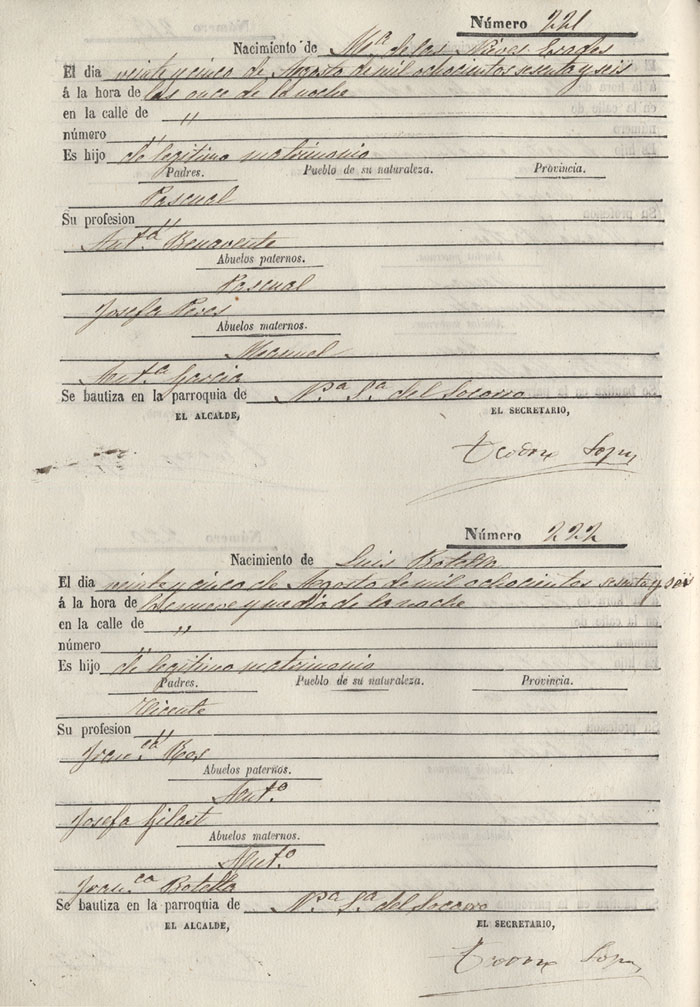 Número 221
Nacimiento de Mª de las Nieves Erades
El dia veinte y cinco de Agosto de mil ochocientos sesenta y seis
á la hora de las once de la noche
en la calle de "
número "
Es hijo de legitimo matrimonio
Padres. Pueblo de su naturaleza. Provincia.
Pascual
Su profesion "
Antª Benavente
Abuelos paternos.
Pascual
Josefa Peres
Abuelos maternos.
Manuel
Antª Garcia
Se bautiza en la parroquia de Nª Sª del Socorro
EL ALCALDE, EL SECRETARIO,
Número 222
Nacimiento de Luis Botella
El dia veinte y cinco de Agosto de mil ochocientos sesenta y seis
á la hora de las nueve y media de la noche
en la calle de "
número "
Es hijo de legitimo matrimonio
Padres. Pueblo de su naturaleza. Provincia.
Vicente
Su profesion "
Franca Ros
Abuelos paternos.
Antº
Josefa
Abuelos maternos.
Antº
Franca Botella
Se bautiza en la parroquia de Nª Sª del Socorro
EL ALCALDE, EL SECRETARIO,